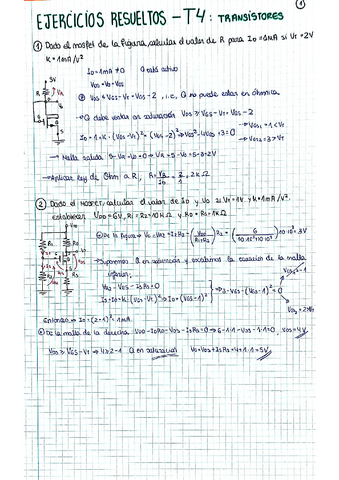 EJERCICIOS RESUELTOS - T4: TRANSISTORES
① Dado el mosfet de la figura, calcular el valor de R para ID=1mA si VT=2V
K=1mA/V².
ID=1mA≠0 Q está activo
VGS=VD=VDS
VDS≥VGS-VT=VDS-2, i.e., Q no puede estar en óhmica
→Q debe estar en saturación VDS≥VGS-VT=VDS-2
ID=1=K·(VGS-VT)²=(VDS-2)²⇒VDS²-4VDS+3=0
VGS1=1<VT
VGS2=3>VT
→Malla salida 5-VR-VD=0⇒VR=5-VD=5-3=2V
→Aplicar ley de Ohm a R, R=VR/ID=2/1=2kΩ
② Dado el MOSFET, calcular el valor de ID y VD si VT=1V y K=1mA/V².
establecer VDD=6V, R1=R2=10kΩ y RD=RS=1kΩ
De la figura⇒VG=VR2=I1·R2=(VDD/(R1+R2))R2=
→Suponemos Q en saturación y escribimos la ecuación de la malla
inferior;
VR2-VGS-ISRS=0
ID=IS=K·(VGS-VT)²⇒ID=(VGS-1)²
3-VGS-(VGS-1)²=0
VGS1=-1
VGS2=2>VT
Entonces⇒ID=(2-1)²=1mA.
De la malla de la derecha, VDD-IDRD-VDS-ISRS=0⇒6-1·1-VDS-1·1=0, VDS=4V.
VDS≥VGS-VT⇒4≥2-1 Q en saturación
VD=VDS+ISRS=4+1·1=5V